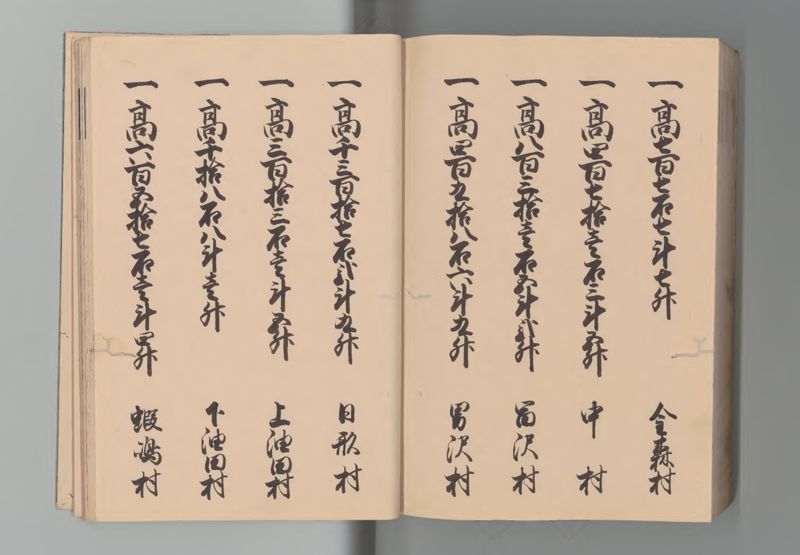 一高七百七石七斗七升 金森村
一高四百七拾壱石三斗五升 中村
一高八百三拾壱石五斗弐升 富沢村
一高四百九拾八石六斗九升 男沢村
一高千三百拾七石弐斗九升 日形村
一高三百拾三石壱斗五升 上油田村
一高千拾八石八斗壱升 下油田村
一高六百五拾七石壱斗四升 蝦嶋村